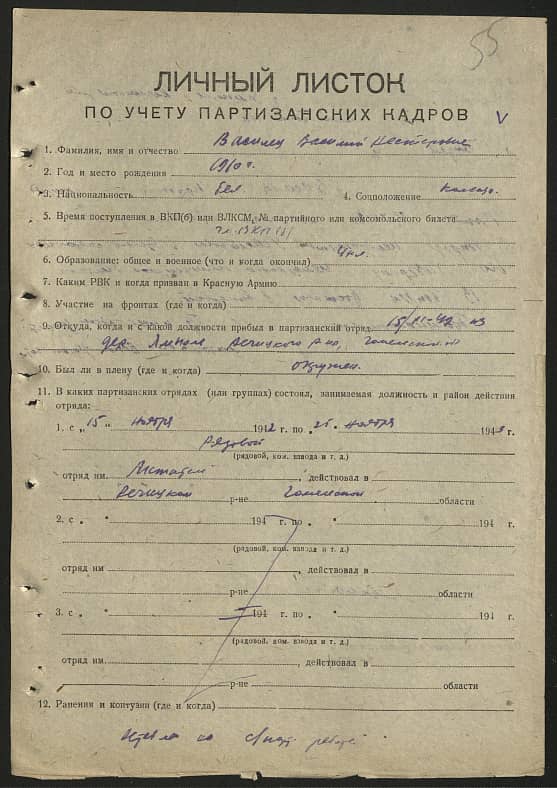 55
ЛИЧНЫЙ ЛИСТОК
ПО УЧЕТУ ПАРТИЗАНСКИХ КАДРОВ V
1. Фамилия, имя и отчество Василец Василий Нестерович
2. Год и место рождения 1910 г.
3. Национальность бел. 4. Соцположение
5. Время поступления в ВКП(б) или ВЛКСМ, № партийного или комсомольского билета
чл. ВКП(б)
6. Образование: общее и военное (что и когда окончил) 4 кл.
7. Каким РВК и когда призван в Красную Армию
8. Участие на фронтах (где и когда)
9. Откуда, когда и с какой должности прибыл в партизанский отряд 15/XI-42 из
дер. Речицкого р-на, Гомельской
10. Был ли в плену (где и когда) окружен.
11. В каких партизанских отрядах (или группах) состоял, занимаемая должность и район действия
отряда:
1. с „15" ноября 1942 г. по „25" ноября 1943 г.
Рядовой
(рядовой, ком. взвода и т. д.)
отряд им. , действовал в
Речицком р-не Гомельской области
2. с „ " 194 г. по „ " 194 г.
(рядовой, ком. взвода и т. д.)
отряд им. , действовал в
р-не области
3. с „ " 194 г. по „ " 194 г.
(рядовой, ком. взвода и т. д.)
отряд им. , действовал в
р-не области
12. Ранения и контузии (где и когда)